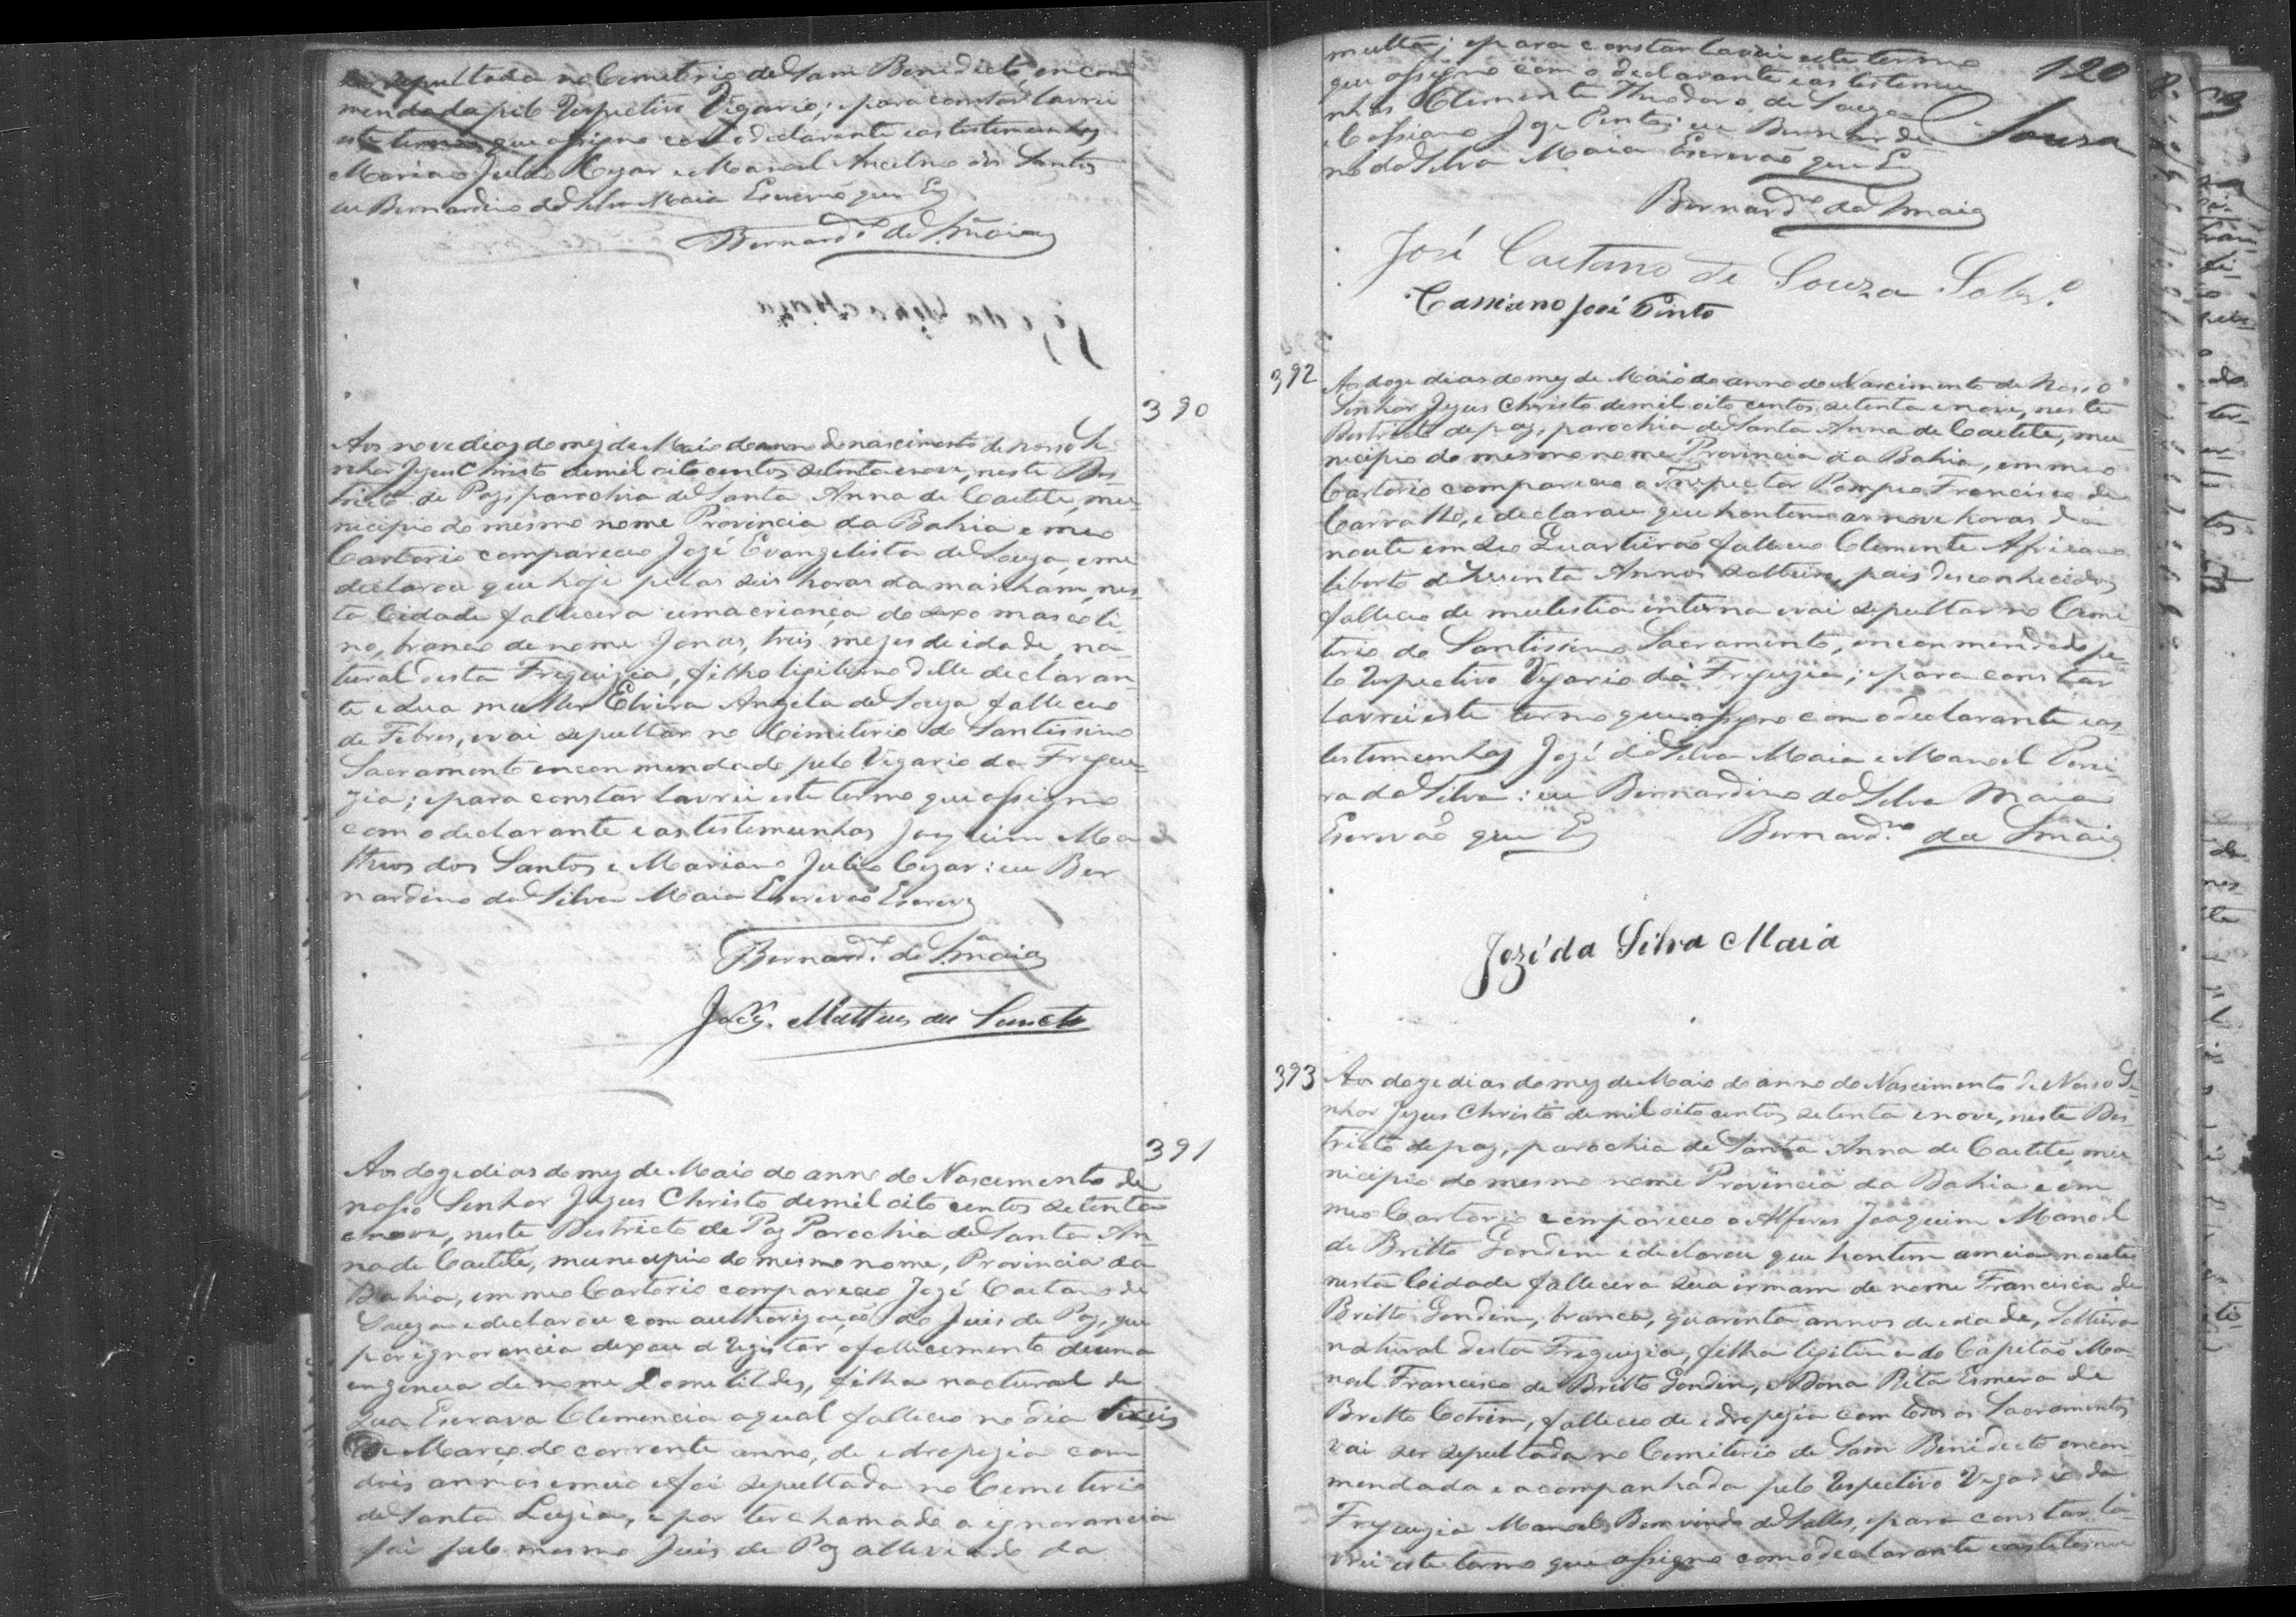 sepultada no Cemeterio de Sam Benedicto, encom
mendada pelo Respectivo Vigario; e para constar lavrei
este termo que assigno com o declarante e as testemunhas
Mariano Julio Cezar e Manoel Anselmo dos Santos
eu Bernardino da Silva Maia Escrivaõ que Es
Bernard.no da S.a Maia
390
Aos nove dias do mez de Maio do anno do nascimento de nosso Se
nhor Jezus Christo de mil oito centos setenta e nove, neste Dis
tricto de Paz, parochia de Santa Anna de Caetité, mu
nicipio do mesmo nome Provincia da Bahia e meo
Cartorio compareceo Jozé Evangelista de Souza, e me
declarou que hoje pelas seis horas da manham, nes
ta Cidade fallecera uma criança do sexo masculi
no, branco de nome Jonas, tres mezes de idade, na
tural desta Freguezia, filho ligitimo delle declaran
te e sua mulher Elvira Angela de Souza falleceo
de Febres, e vai sepultar no Cimiterio do Santissimo
Sacramento encommendado pelo Vigario da Fregue
zia; e para constar lavrei este termo que assigno
com o declarante e as testemunhas Joaquim Ma
theus dos Santos e Mariano Julio Cezar: eu Ber
nardino da Silva Maia Escrivaõ Escrevy
Bernard.no da S.a Maia
Joaq.m Mattheus dos Sanctos
391
Aos doze dias do mez de Maio do anno do Nascimento de
nosso Senhor Jezus Christo de mil oito centos setenta
e nove, neste Districto de Paz Parochia de Santa An
na de Caetité, municipio do mesmo nome, Provincia da
Bahia, em meo Cartorio compareceo Jozé Caetano de
Souza e declarou com authorizaçaõ do Juis de Paz, que
por ignorancia dexou d registar o fallecimento de uma
engenua de nome Dometildes, filha nactural de
sua Escrava Clemencia a qual falleceo no dia
de Março do corrente anno, de edropezia com
dois annos e meio e foi sepultada no Cemeterio
de Santa Luzia, e por ter chamado a ignorancia
foi pelo mesmo Juis de Paz alleviado da
120
multa; e para constar lavrei este termo
que assigno com o declarante e as testemu
nhas Clemente Theodoro de Souza
e Cassiano Joze Pinto; eu Bernardi
no da Silva Maia Escrivaõ que Es
Souza
Bernard.no da S.a Maia
José Caetano de Souza Sobr.o
Cassiano José Pinto
392
Aos doze dias do mez de Maio do anno do Nascimento de Nosso
Senhor Jezus Christo de mil oito centos setenta e nove, neste
Destricto de paz, parochia de Santa Anna de Caetité, mu
nicipio do mesmo nome Provincia da Bahia, em meo
Cartorio compareceo o Inspector Pompeo Francisco de
Carvalho, e declarou que hontem as nove horas da
noute em seo Quarteiraõ falleceo Clemente Africano
liberto de sessenta Annos solteiro, pais desconhecidos
falleceo de mulestia interna e vai sepultar no Cemi
terio do Santissimo Sacramento, encommendado pe
lo respectivo Vigario da Freguezia; e para constar
lavrei este termo que assigno com o declarante e as
testemunhas Jozé da Silva Maia e Manoel Perei
ra da Silva: eu Bernardino da Silva Maia
Escrivaõ que Es Bernard.no da S.a Maia
Jozé da Silva Maia
393
Aos doze dias do mez de Maio do anno do Nascimento de Nosso Se
nhor Jezus Christo de mil oito centos setenta e nove, neste Dis
tricto de paz, parochia de Santa Anna de Caetité, mu
nicipio do mesmo nome Provincia da Bahia e em
meo Cartorio compareceo o Alferes Joaquim Manoel
de Britto Gondim e declarou que hontem a meia noute
nesta Cidade fallecera sua irmam de nome Francisca de
Britto Gondim, branca, quarenta annos de idade, Solteira
natural desta Freguezia, filha ligitima do Capitaõ Ma
noel Francisco de Britto Gondim, e Dona Rita Esmera de
Britto Cotrim, falleceo de edropezia com todos os Sacramentos
vai ser sepultada no Cemiterio de Sam Benidecto encom
mendada e acompanhada pelo respectivo Vigario da
Freguezia Manoel Bemvindo de Salles, e para constar la
vrei este termo que assigno com o declarante e as testemu